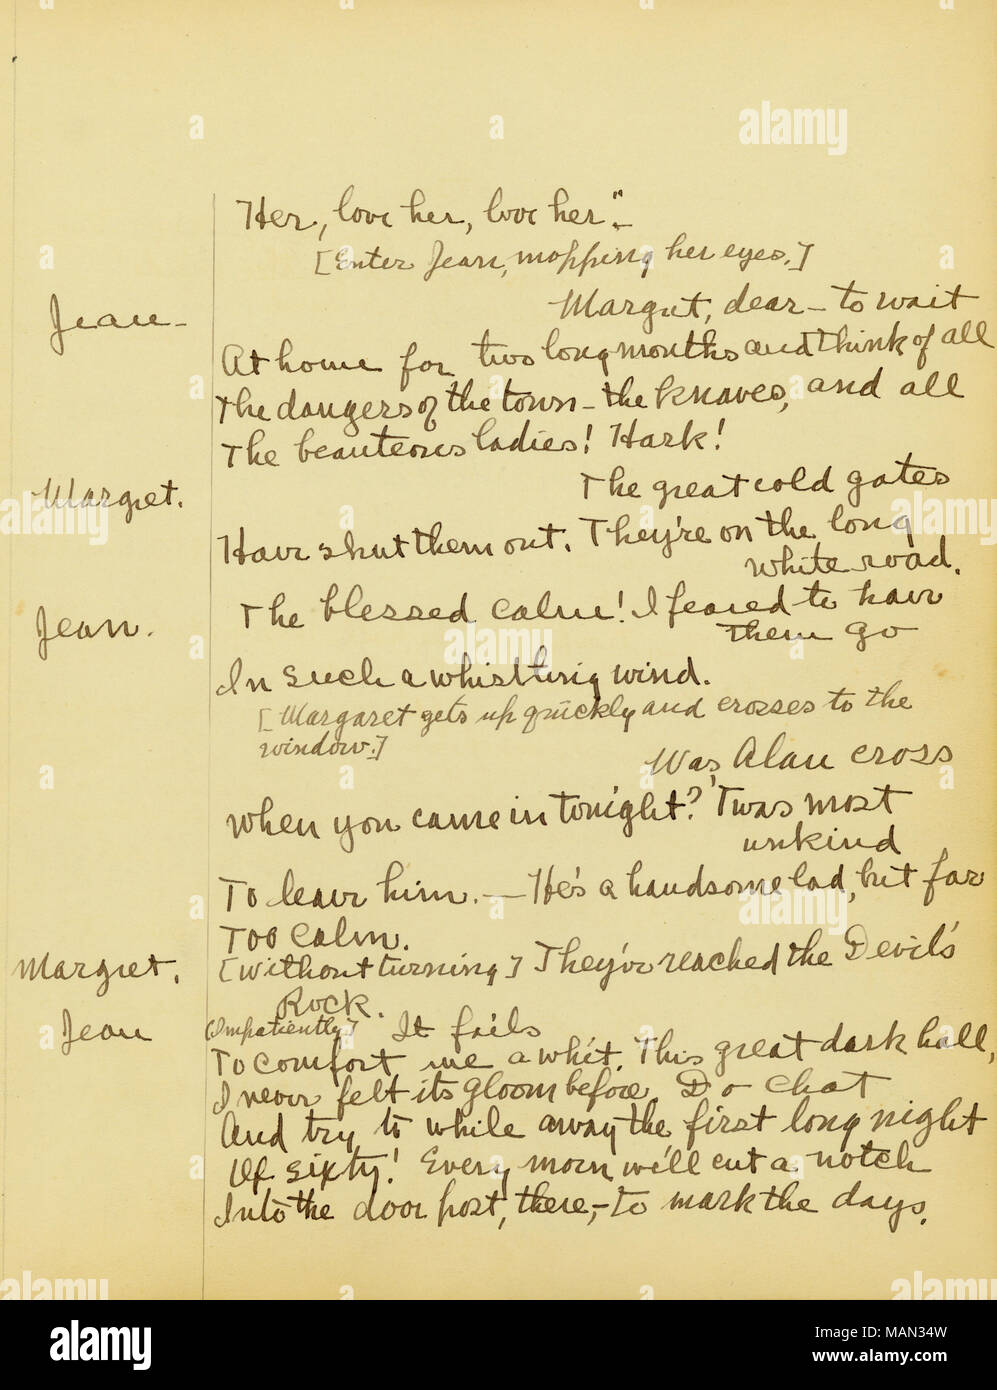 Her, love her, love her."—
[Enter Jean, mopping her eyes.]
Jean— Margret, dear— to wait
At home for two long months and think of all
The dangers of the town— the knaves, and all
The beauteous ladies! Hark!
Margret. The great cold gates
Have shut them out. They're on the long
white road.
Jean. The blessed calm! I feared to have
them go
In such a whistling wind.
[Margaret gets up quickly and crosses to the
window.]
Was Alan cross
When you came in tonight? 'Twas most
unkind
To leave him.— He's a handsome lad, but far
Too calm.
Margret. [Without turning] They've reached the Devil's
Rock.
Jean (Impatiently] It fails
To comfort me a whit. This great dark hall,
I never felt its gloom before. Do chat
And try to while away the first long night
Of sixty! Every morn we'll cut a notch
Into the door post, there,— to mark the days.
alamy
alamy
alamy
alamy
alamy
alamy
alamy
alamy
a
a
a
a
a
a
alamy
Image ID: MAN34W
www.alamy.com